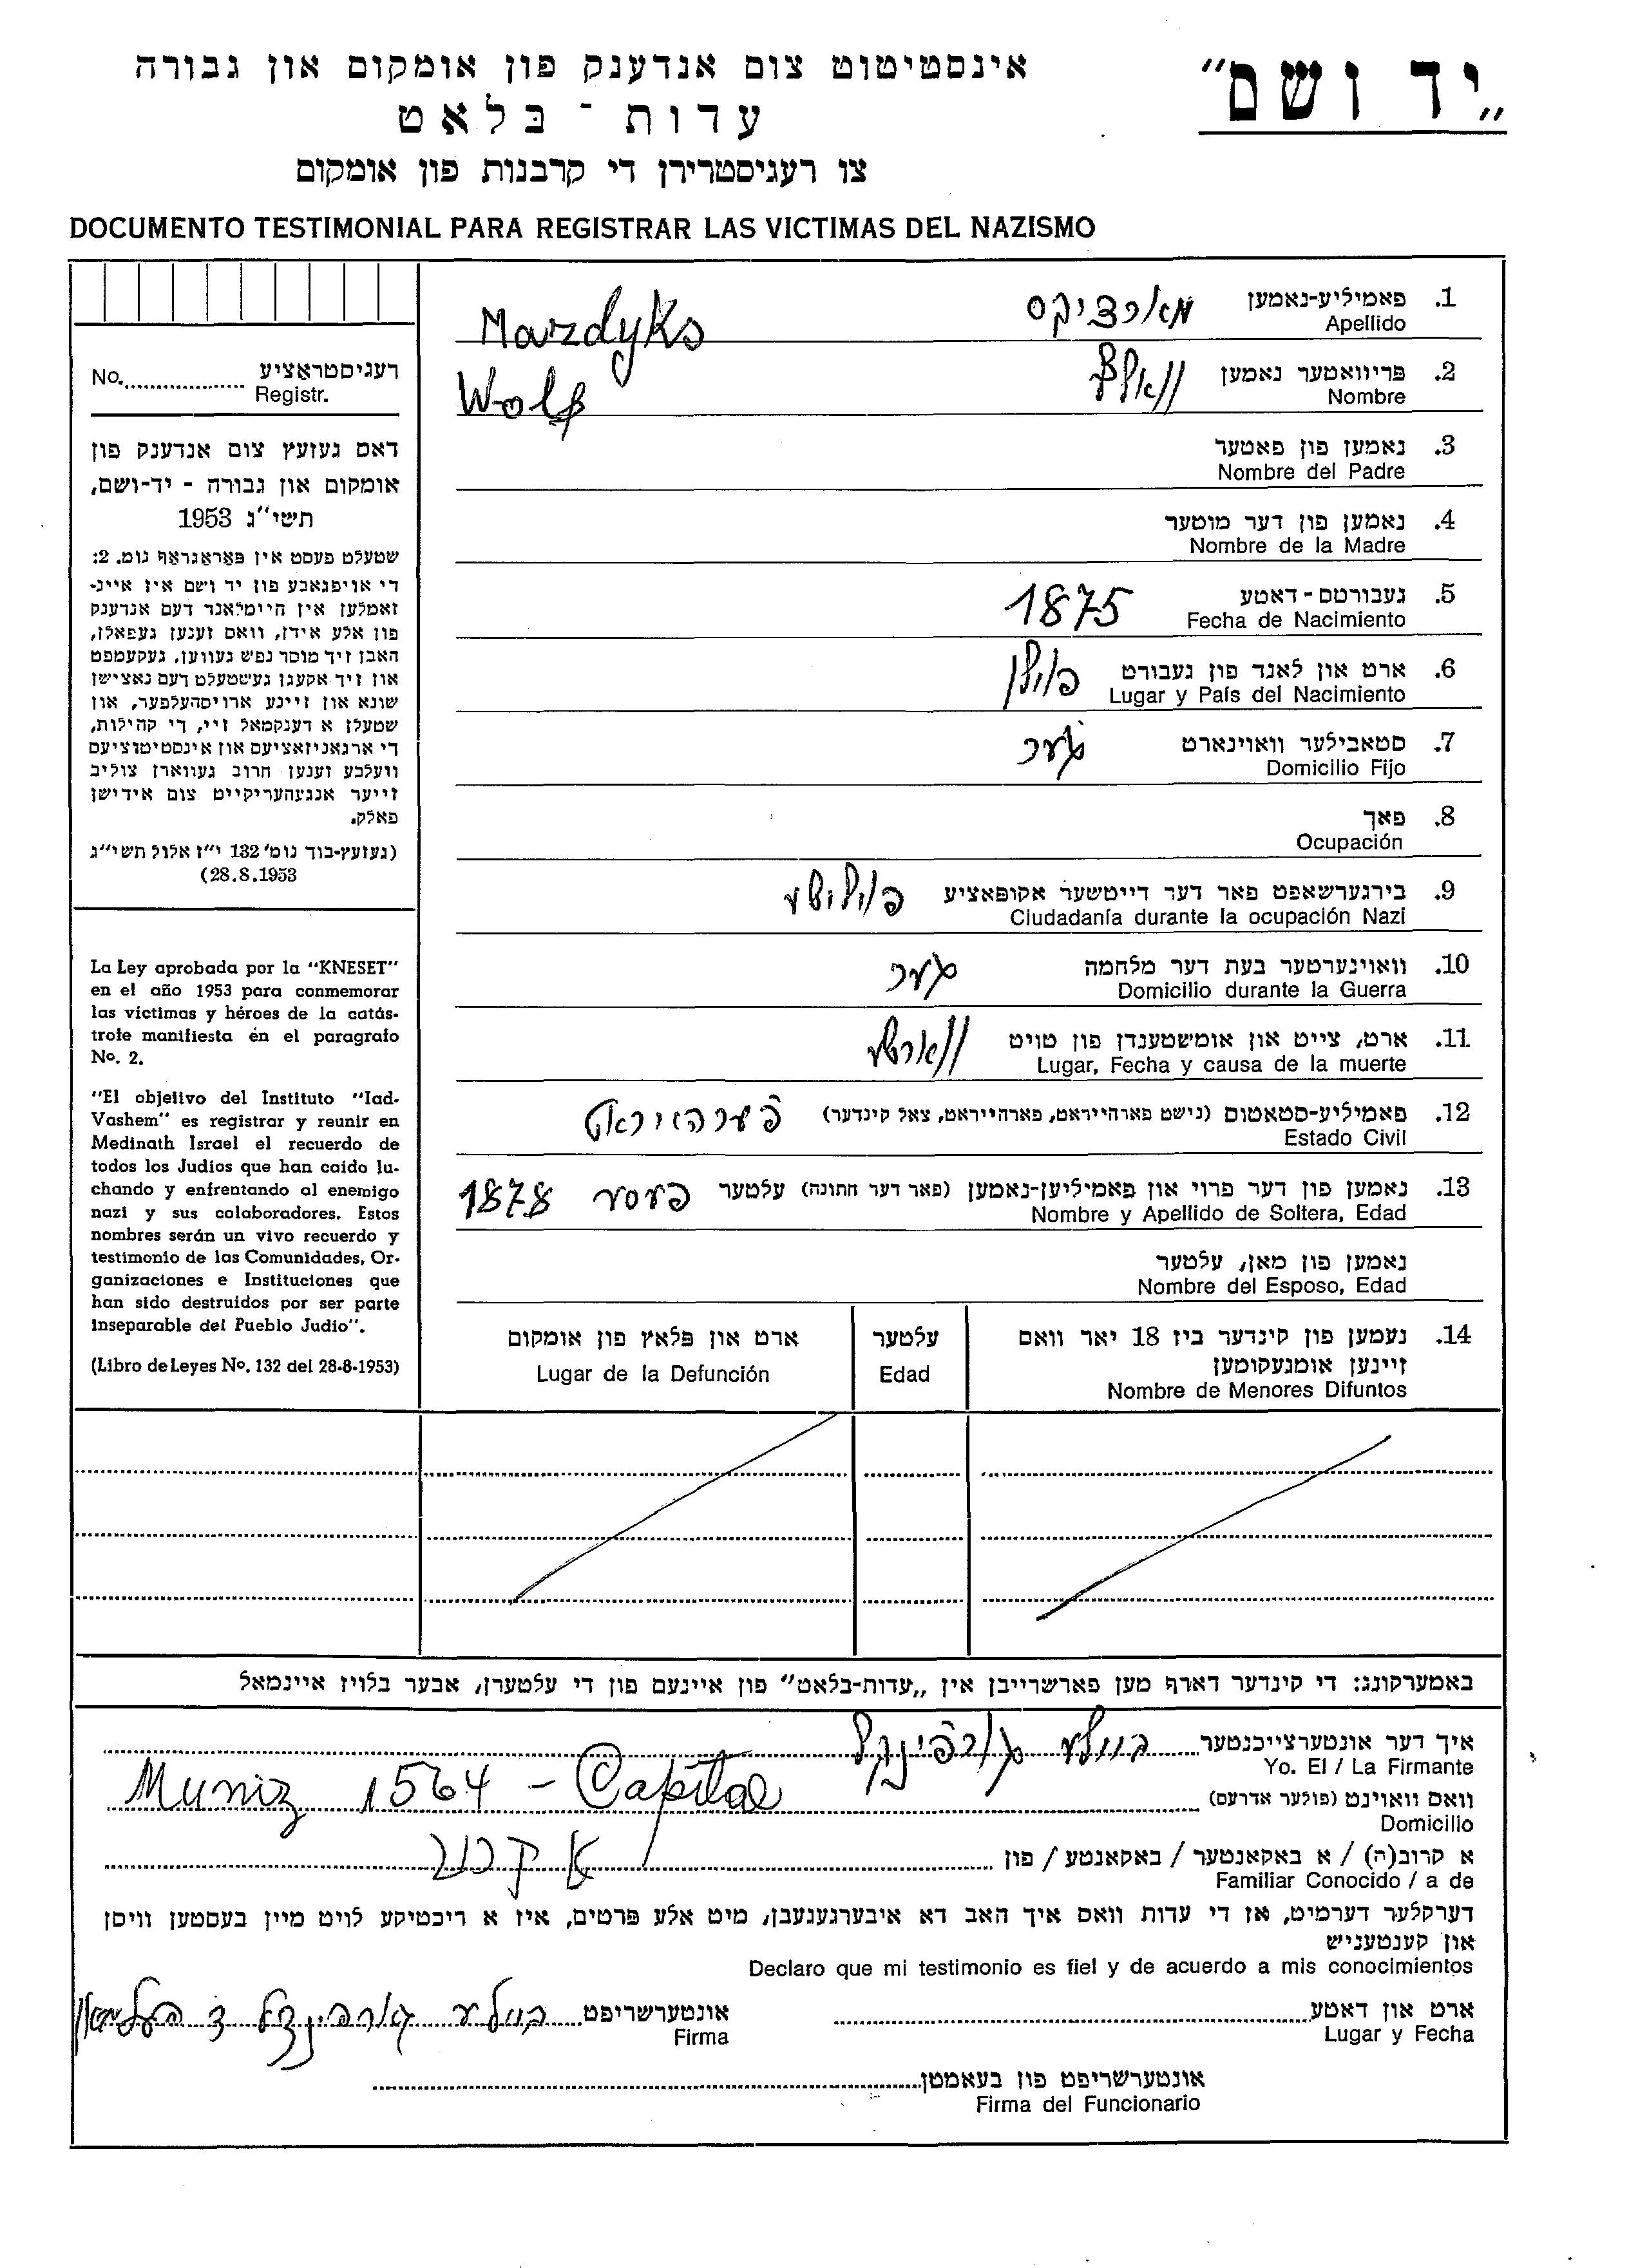 „יד ושם"
אינסטיטוט צום אנדענק פון אומקום און גבורה
עדות - בלאט
צו רעגיסטרירן די קרבנות פון אומקום
DOCUMENTO TESTIMONIAL PARA REGISTRAR LAS VICTIMAS DEL NAZISMO
רעגיסטראציע
No. Registr.
דאס געזעץ צום אנדענק פון
אומקום און גבורה - יד-ושם,
תשי"ג 1953
שטעלט פעסט אין פאראגראף נומ. 2:
די אויפגאבע פון יד ושם איז איינ-
זאמלען אין היימלאנד דעם אנדענק
פון אלע אידן, וואס זענען געפאלן,
האבן זיך מוסר נפש געווען, געקעמפט
און זיך אקעגן געשטעלט דעם נאצישן
שונא און זיינע ארויסהעלפער, און
שטעלן א דענקמאל זיי, די קהילות,
די ארגאניזאציעס און אינסטיטוציעס
וועלכע זענען חרוב געווארן צוליב
זייער אנגעהעריקייט צום אידישן
פאלק.
(געזעץ-בוך נומ' 132 י"ז אלול תשי"ג
28.8.1953)
La Ley aprobada por la "KNESET"
en el año 1953 para conmemorar
las víctimas y héroes de la catás-
trofe manifiesta én el paragrafo
Nº. 2.
"El objetivo del Instituto "Iad-
Vashem" es registrar y reunir en
Medinath Israel el recuerdo de
todos los Judíos que han caído lu-
chando y enfrentando al enemigo
nazi y sus colaboradores. Estos
nombres serán un vivo recuerdo y
testimonio de las Comunidades, Or-
ganizaciones e Instituciones que
han sido destruidos por ser parte
inseparable del Pueblo Judío".
(Libro de Leyes Nº. 132 del 28-8-1953)
1. פאמיליע-נאמען מארדזיקס Mardyks
Apellido
2. פריוואטער נאמען וואלף Wolf
Nombre
3. נאמען פון פאטער
Nombre del Padre
4. נאמען פון דער מוטער
Nombre de la Madre
5. געבורטס-דאטע 1875
Fecha de Nacimiento
6. ארט און לאנד פון געבורט פוילן
Lugar y País del Nacimiento
7. סטאבילער וואוינארט
Domicilio Fijo
8. פאך
Ocupación
9. בירגערשאפט פאר דער דייטשער אקופאציע פוילישע
Ciudadanía durante la ocupación Nazi
10. וואוינערטער בעת דער מלחמה
Domicilio durante la Guerra
11. ארט, צייט און אומשטענדן פון טויט ווארשע
Lugar, Fecha y causa de la muerte
12. פאמיליע-סטאטוס (נישט פארהייראט, פארהייראט, צאל קינדער) פערהייראט
Estado Civil
13. נאמען פון דער פרוי און פאמיליען-נאמען (פאר דער חתונה) עלטער פעסע 1878
Nombre y Apellido de Soltera, Edad
נאמען פון מאן, עלטער
Nombre del Esposo, Edad
14. נעמען פון קינדער ביז 18 יאר וואס עלטער ארט און פלאץ פון אומקום
זיינען אומגעקומען
Nombre de Menores Difuntos Edad Lugar de la Defunción
באמערקונג: די קינדער דארף מען פארשרייבן אין „עדות-בלאט" פון איינעם פון די עלטערן, אבער בלויז איינמאל
איך דער אונטערצייכנטער ביילע גארפינקל
Yo. El / La Firmante
וואס וואוינט (פולער אדרעס) Muniz 1564 - Capital
Domicilio
א קרוב(ה) / א באקאנטער / באקאנטע / פון א קרוב
Familiar Conocido / a de
דערקלער דערמיט, אז די עדות וואס איך האב דא איבערגעגעבן, מיט אלע פרטים, איז א ריכטיקע לויט מיין בעסטען וויסן
און קענטעניש
Declaro que mi testimonio es fiel y de acuerdo a mis conocimientos
ארט און דאטע אונטערשריפט ביילע גארפינקל
Lugar y Fecha Firma
אונטערשריפט פון בעאמטן
Firma del Funcionario